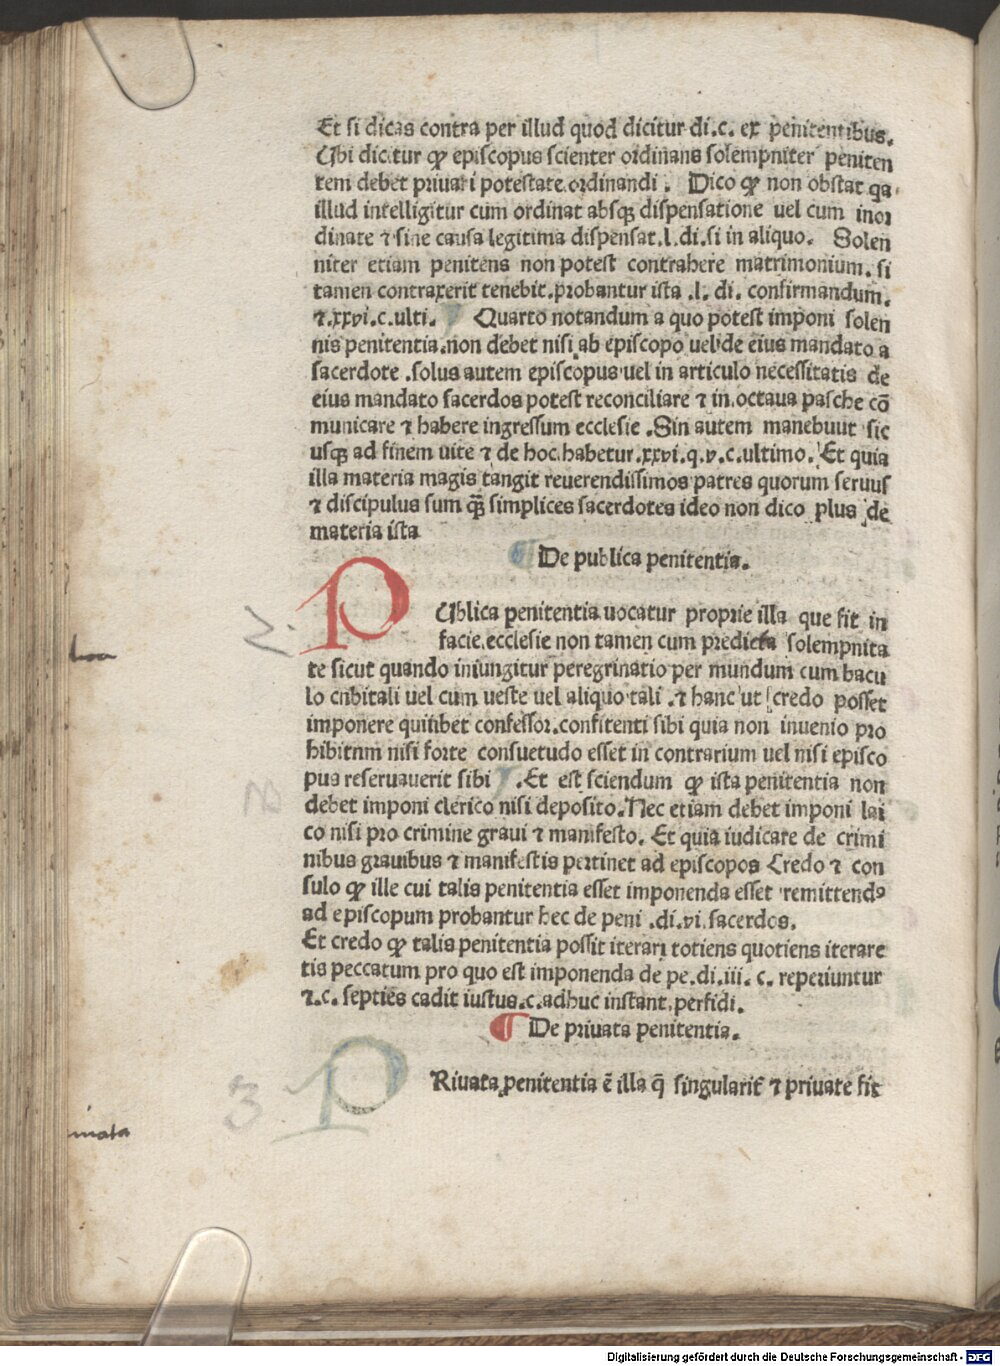 Et si dicas contra per illud quod dicitur di.c. ex penitentibus.
Ubi dicitur ꝙ episcopus scienter ordinans solempniter peniten
tem debet priuari potestate ordinandi . Dico ꝙ non obstat qa
illud intelligitur cum ordinat absqꝫ dispensatione uel cum inor
dinate ⁊ sine causa legitima dispensat.l.di.si in aliquo. Solen
niter etiam penitens non potest contrahere matrimonium. si
tamen contraxerit tenebit.probantur ista .l. di. confirmandum.
⁊.xxvi.c.ulti. Quarto notandum a quo potest imponi solen
nis penitentia.non debet nisi ab episcopo uel de eius mandato a
sacerdote .solus autem episcopus uel in articulo necessitatis de
eius mandato sacerdos potest reconciliare ⁊ in octaua pasche cō
municare ⁊ habere ingressum ecclesie .Sin autem manebuut sic
usqꝫ ad finem uite ⁊ de hoc habetur.xxvi.q.v.c.ultimo. Et quia
illa materia magis tangit reuerendissimos patres quorum seruus
⁊ discipulus sum qꝫ̄ simplices sacerdotes ideo non dico plus de
materia ista
¶ De publica penitentia.
PUblica penitentia uocatur proprie illa que fit in
2.
facie ecclesie non tamen cum predicta solempnita
te sicut quando iniungitur peregrinatio per mundum cum bacu
lo cubitali uel cum ueste uel aliquo tali .⁊ hanc ut credo posset
imponere quilibet confessor.confitenti sibi quia non inuenio pro
hibitnm nisi forte consuetudo esset in contrarium uel nisi episco
pus reseruauerit sibi .Et est sciendum ꝙ ista penitentia non
debet imponi clerico nisi deposito.Nec etiam debet imponi lai
co nisi pro crimine graui ⁊ manifesto. Et quia iudicare de crimi
nibus grauibus ⁊ manifestis pertinet ad episcopos Credo ⁊ con
sulo ꝙ ille cui talis penitentia esset imponenda esset remittendꝰ
ad episcopum probantur hec de peni .di.vi.sacerdos.
Et credo ꝙ talis penitentia possit iterari totiens quotiens iterare
tis peccatum pro quo est imponenda de pe.di.iii. c. reperiuntur
⁊.c. septies cadit iustus.c.adhuc instant perfidi.
¶ De priuata penitentia.
3 PRiuata penitentia ē illa q̄ singularit̄ ⁊ priuate fit
Digitalisierung gefördert durch die Deutsche Forschungsgemeinschaft - DFG